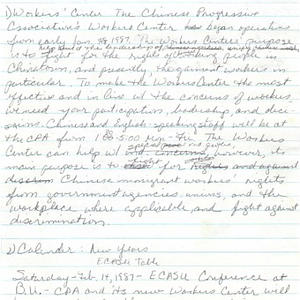 1) Workers' Center The Chinese Progressive
Association's Workers Center has began operation
from early Jan, 1987. The Workers Center's purpose
is to fight for the rights of working people in
Chinatown, and presently, the garment workers in
particular. To make the Workers Center the most
effective and in line w/ the concerns of workers,
we need your participation, leadership, and deci-
sions. Chinese and English-speaking staff will be at
the CPA from 1:00-5:00 pm - Fri. The Workers
Center can help w/ however, its
main purpose is to fight for
Chinese immigrant workers' rights
from government agencies, unions, and the
workplace where applicable, and fight against
discrimination.
2) Calender: New Years
ECASU Talk
Saturday - Feb. 14, 1987 - ECASU Conference at
B.U. - CPA and its new Workers Center will